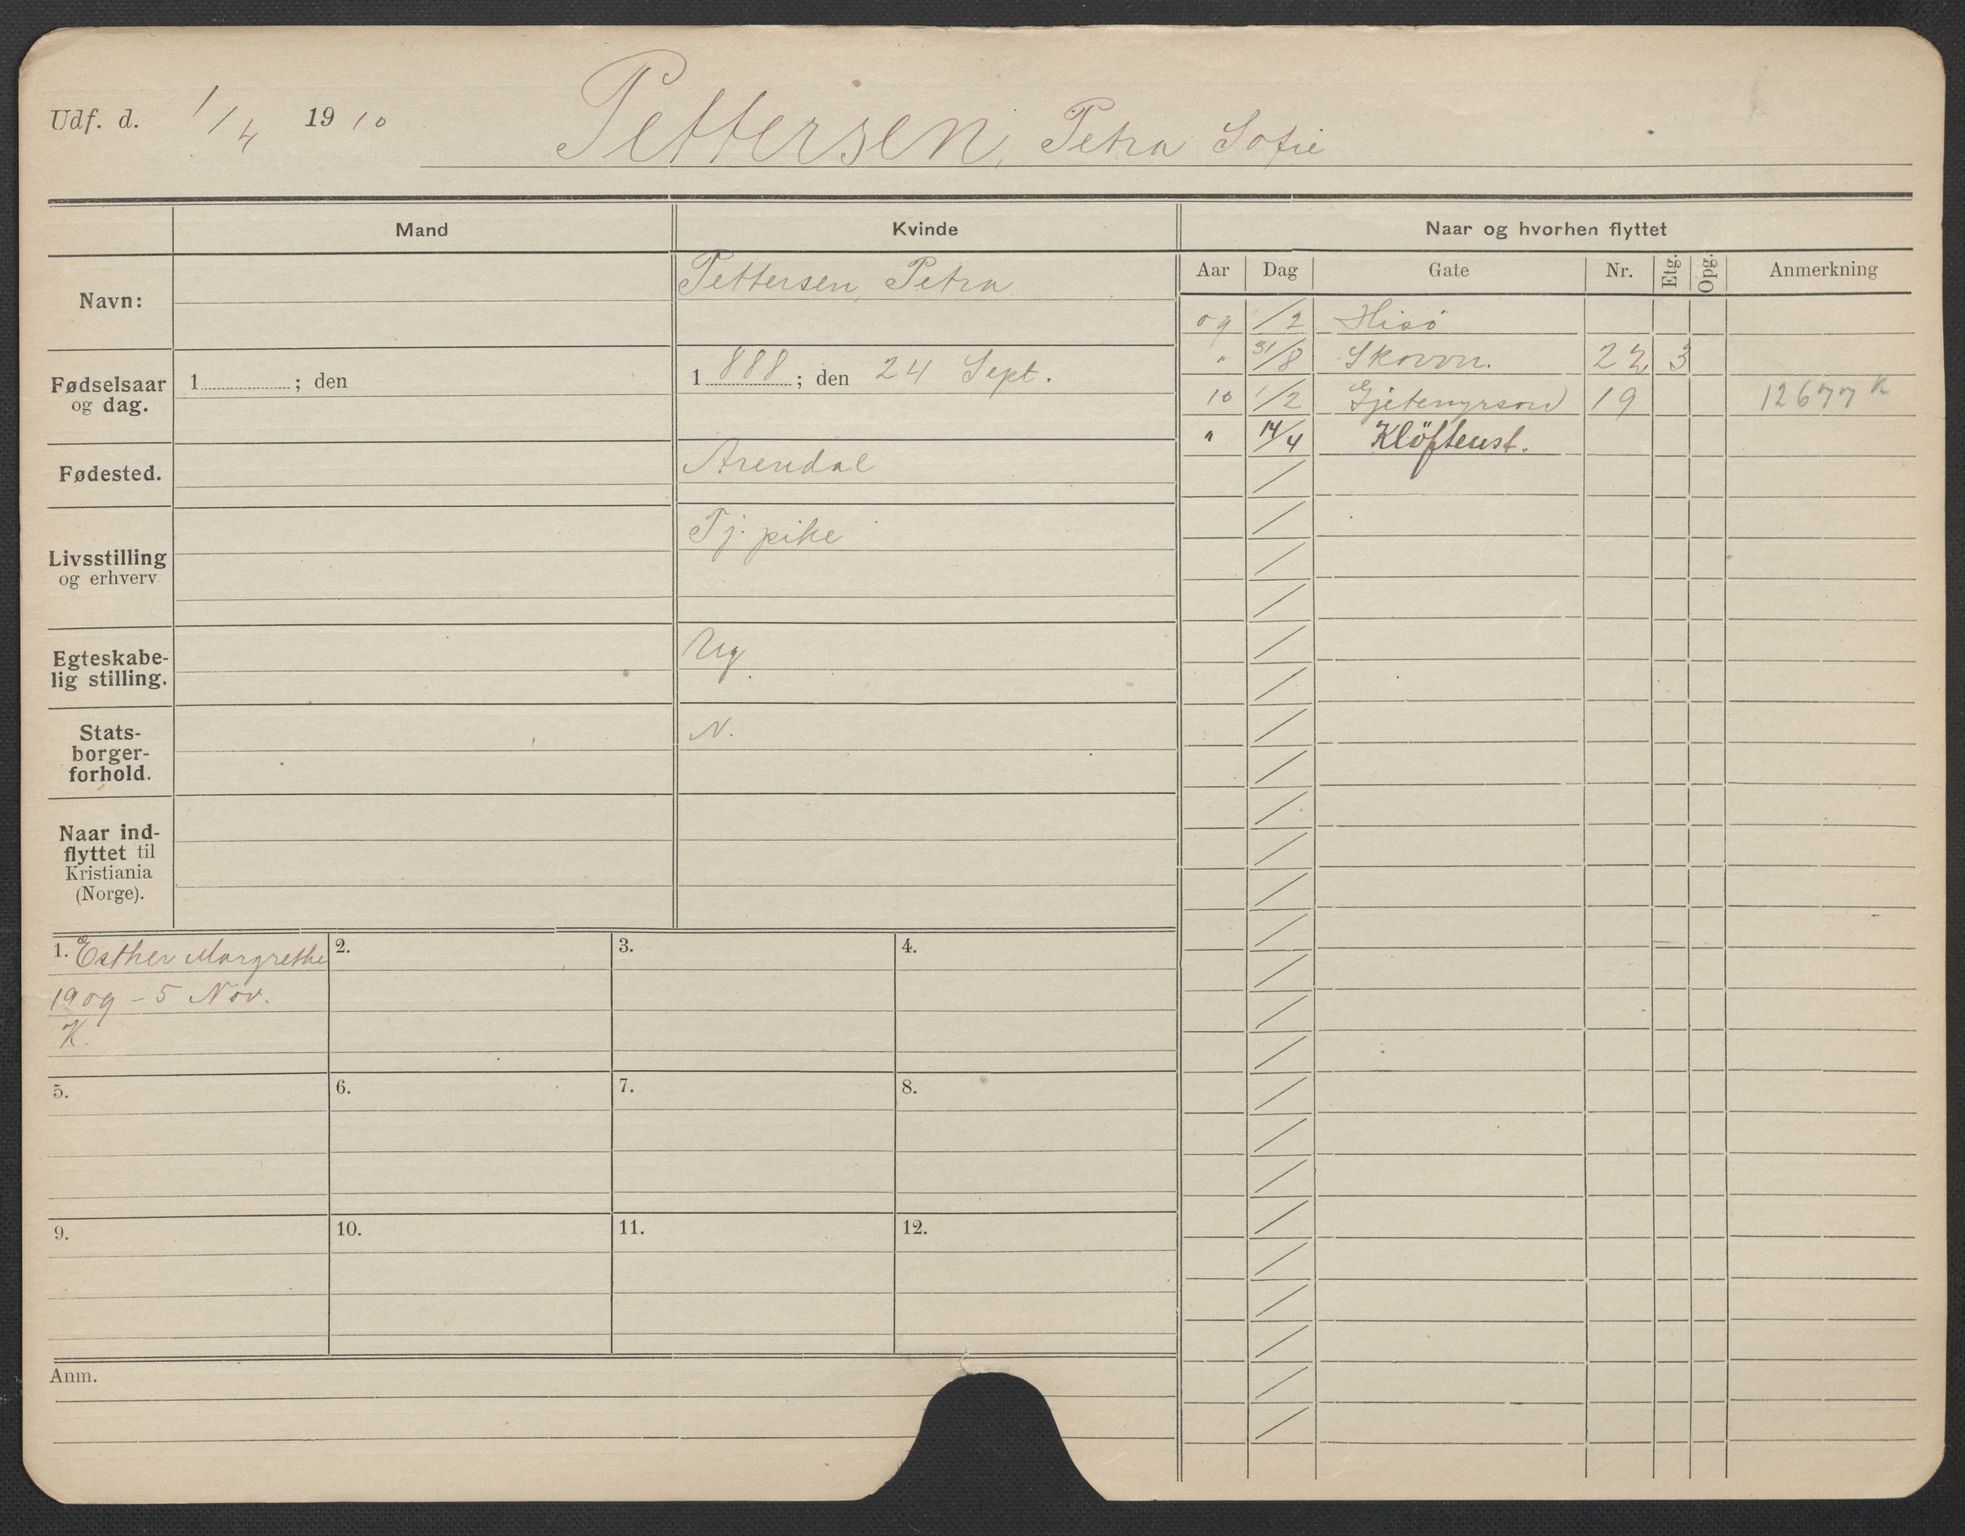 Udf. d. 1/4 1910 Pettersen, Petra Sofie
Mand Kvinde Naar og hvorhen flyttet
Navn: Pettersen, Petra
Fødselsaar og dag. 1 ; den 1888 ; den 24 Sept.
Fødested. Arendal
Livsstilling og erhverv Tj. pike
Egteskabe-
lig stilling. Ug.
Stats-
borger-
forhold. N.
Naar ind-
flyttet til
Kristiania
(Norge).
Aar Dag Gate Nr. Etg. Opg. Anmerkning
09 1/2 Hisö
" 31/8 Skovvn. 22 3
10 1/2 Gjetemyrsvn 19 12677 K
" 14/4 Klöftenst.
1. Esther Margrethe 2. 3. 4.
1909 - 5 Nov.
K.
5. 6. 7. 8.
9. 10. 11. 12.
Anm.